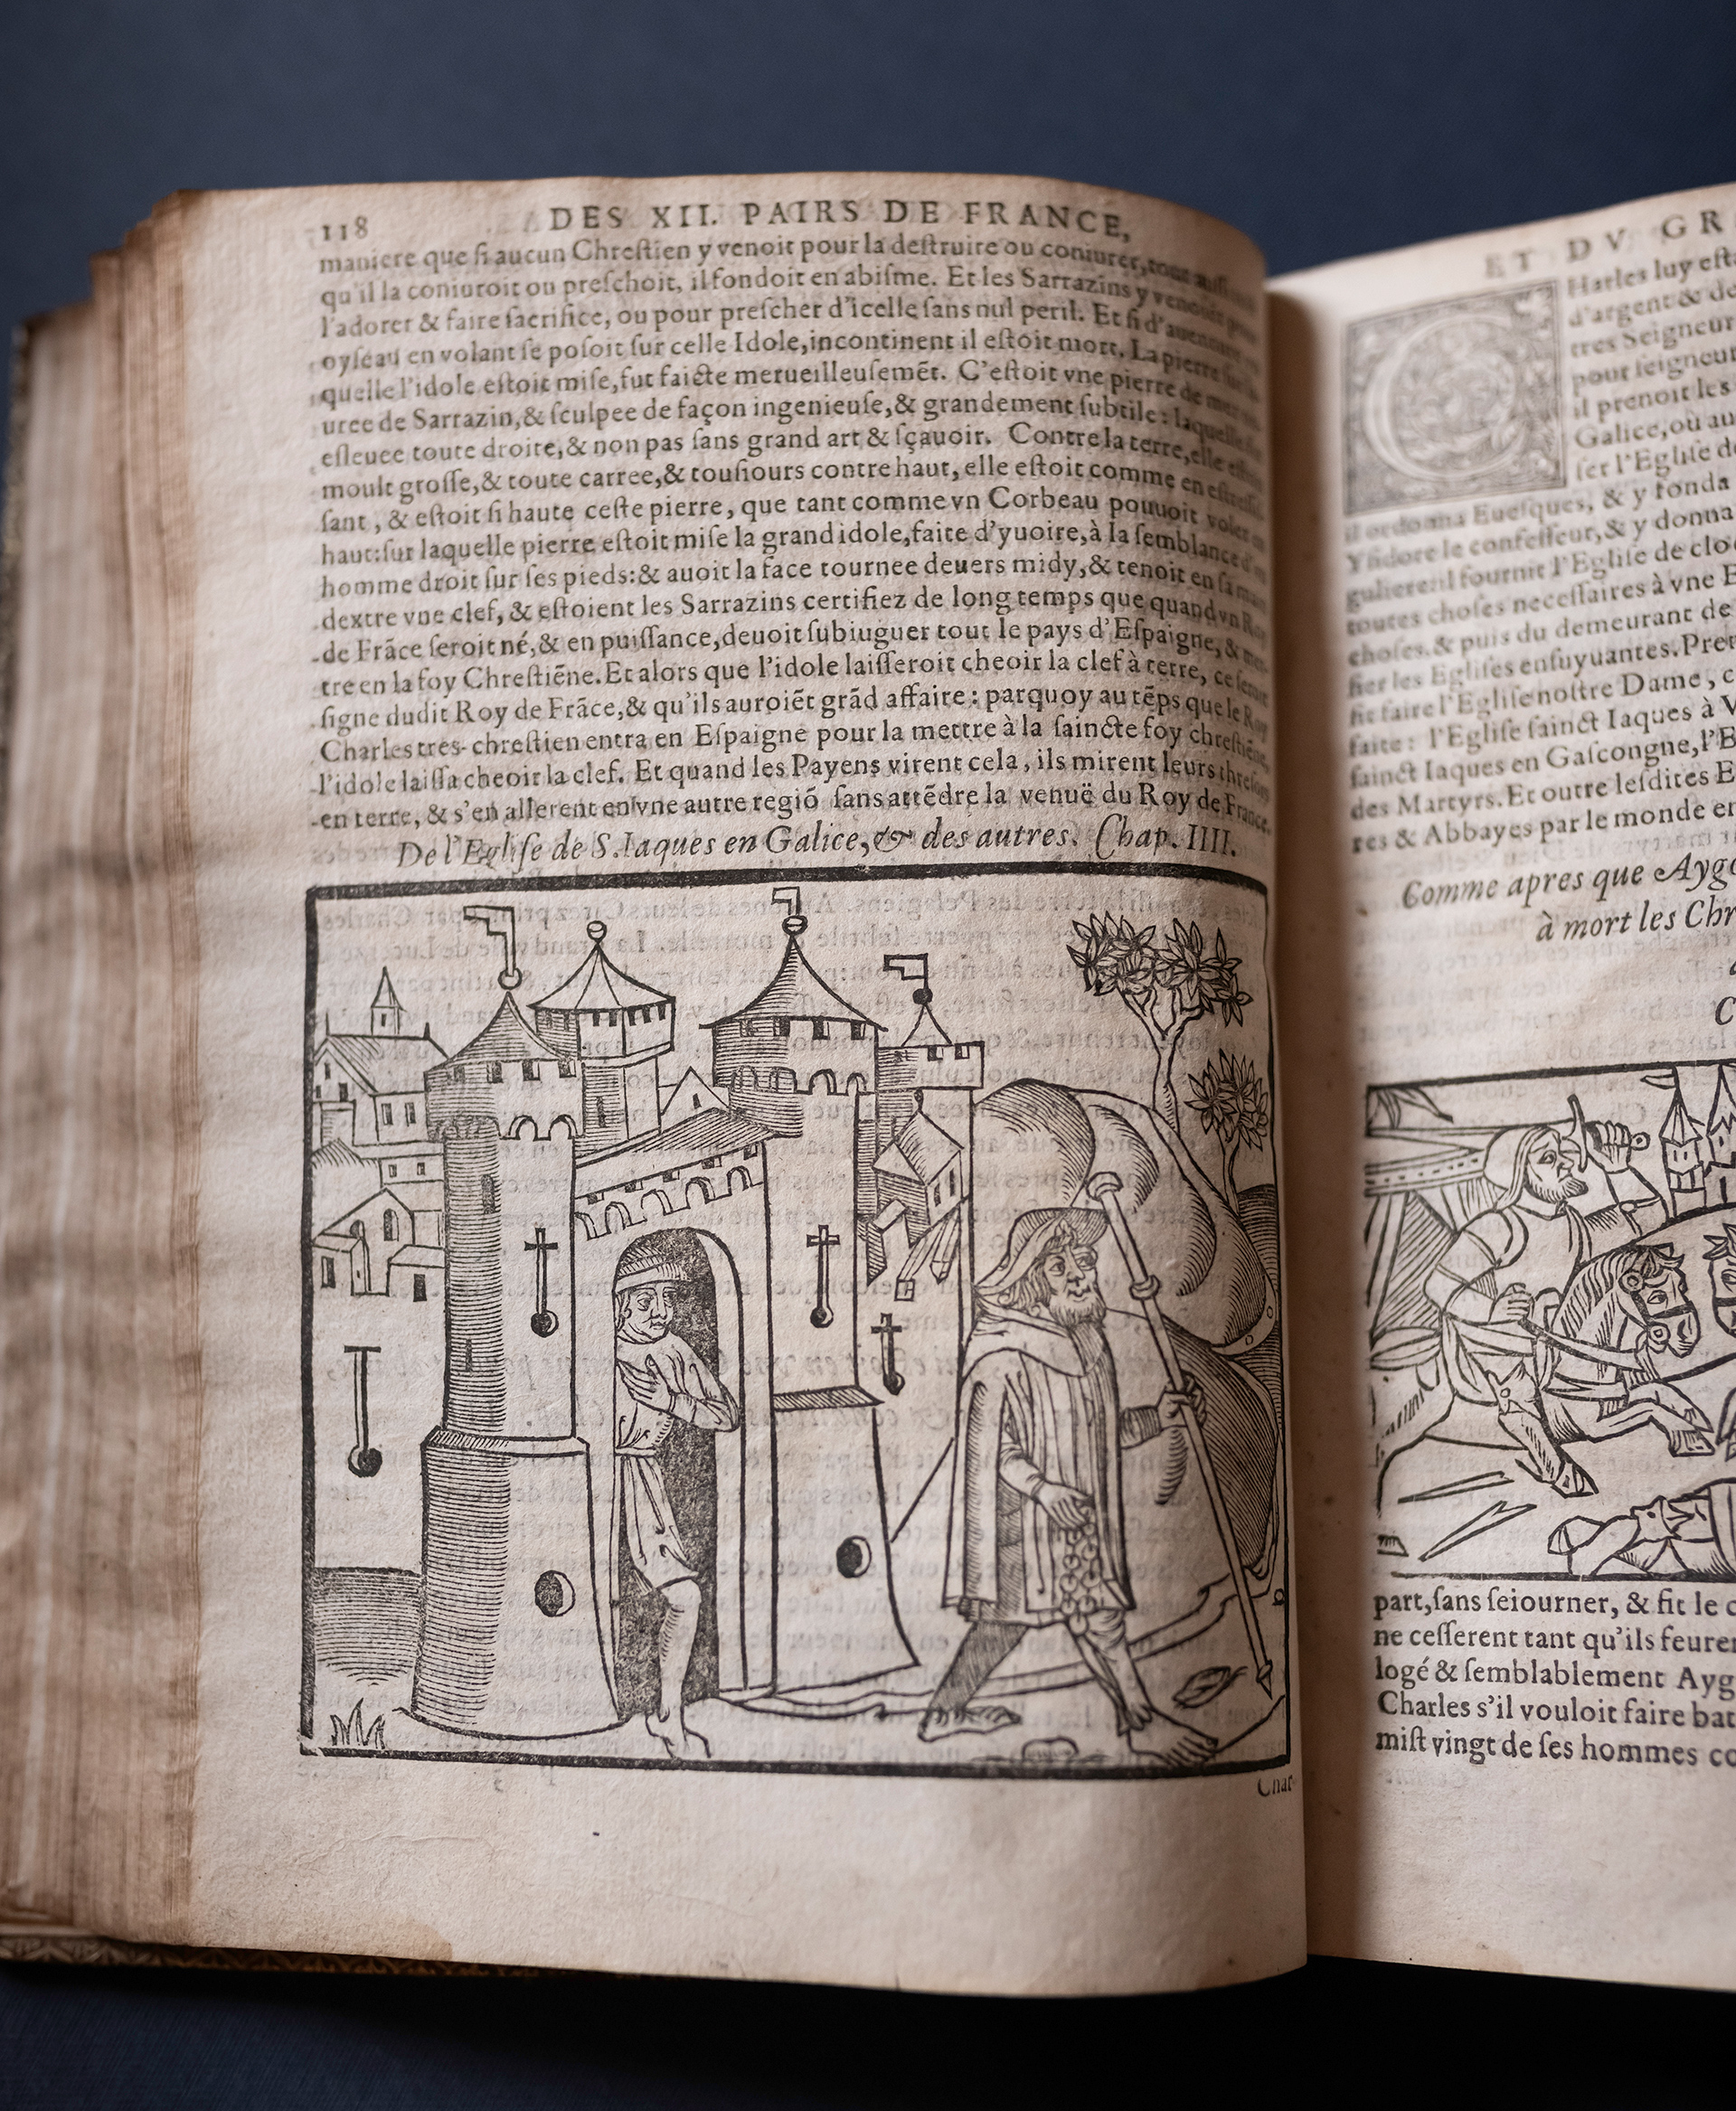 118
DES XII. PAIRS DE FRANCE,
maniere que ſi aucun Chreſtien y venoit pour la deſtruire ou coniurer, tout
qu'il la coniuroit ou preſchoit, il fondoit en abiſme. Et les Sarrazins y venoient
l'adorer & faire ſacrifice, ou pour preſcher d'icelle ſans nul peril. Et ſi d'auenture
oyſeau en volant ſe poſoit ſur celle Idole, incontinent il eſtoit mort. La pierre
quelle l'idole eſtoit miſe, fut faicte merueilleuſemẽt. C'eſtoit vne pierre de
uree de Sarrazin, & ſculpee de façon ingenieuſe, & grandement ſubtile: laquelle
eſleuee toute droite, & non pas ſans grand art & ſçauoir. Contre la terre, elle eſtoit
moult groſſe, & toute carree, & touſiours contre haut, elle eſtoit comme en
ſant, & eſtoit ſi haute ceſte pierre, que tant comme vn Corbeau pouuoit voler en
haut: ſur laquelle pierre eſtoit miſe la grand idole, faite d'yuoire, à la ſemblance d'
homme droit ſur ſes pieds: & auoit la face tournee deuers midy, & tenoit en ſa
dextre vne clef, & eſtoient les Sarrazins certifiez de long temps que quand vn Roy
de Frãce ſeroit né, & en puiſſance, deuoit ſubiuguer tout le pays d'Eſpaigne, & met-
tre en la foy Chreſtiẽne. Et alors que l'idole laiſſeroit cheoir la clef à terre, ce ſeroit
ſigne dudit Roy de Frãce, & qu'ils auroiẽt grãd affaire: parquoy au tẽps que le Roy
Charles tres-chreſtien entra en Eſpaigne pour la mettre à la ſaincte foy chreſtiẽne,
l'idole laiſſa cheoir la clef. Et quand les Payens virent cela, ils mirent leurs threſors
en terre, & s'en allerent en vne autre regiõ ſans attẽdre la venuë du Roy de France.
De l'Egliſe de S. Iaques en Galice, & des autres. Chap. IIII.
Char-
ET DV GR
Harles luy eſt
d'argent & de
tres Seigneur
pour ſeigneur
il prenoit les
Galice, où au
ſer l'Egliſe d
il ordonna Eueſques, & y fonda
Yſidore le confeſſeur, & y donna
gulier: il fournit l'Egliſe de clo
toutes choſes neceſſaires à vne E
choſes. & puis du demeurant de
fier les Egliſes enſuyuantes. Pre
fit faire l'Egliſe noſtre Dame, c
faite: l'Egliſe ſainct Iaques à V
ſainct Iaques en Gaſcongne, l'E
des Martyrs. Et outre leſdites E
res & Abbayes par le monde en
Comme apres que Aygo
à mort les Chr
C
part, ſans ſeiourner, & fit le c
ne ceſſerent tant qu'ils feure
logé & ſemblablement Ayg
Charles s'il vouloit faire bat
miſt vingt de ſes hommes co